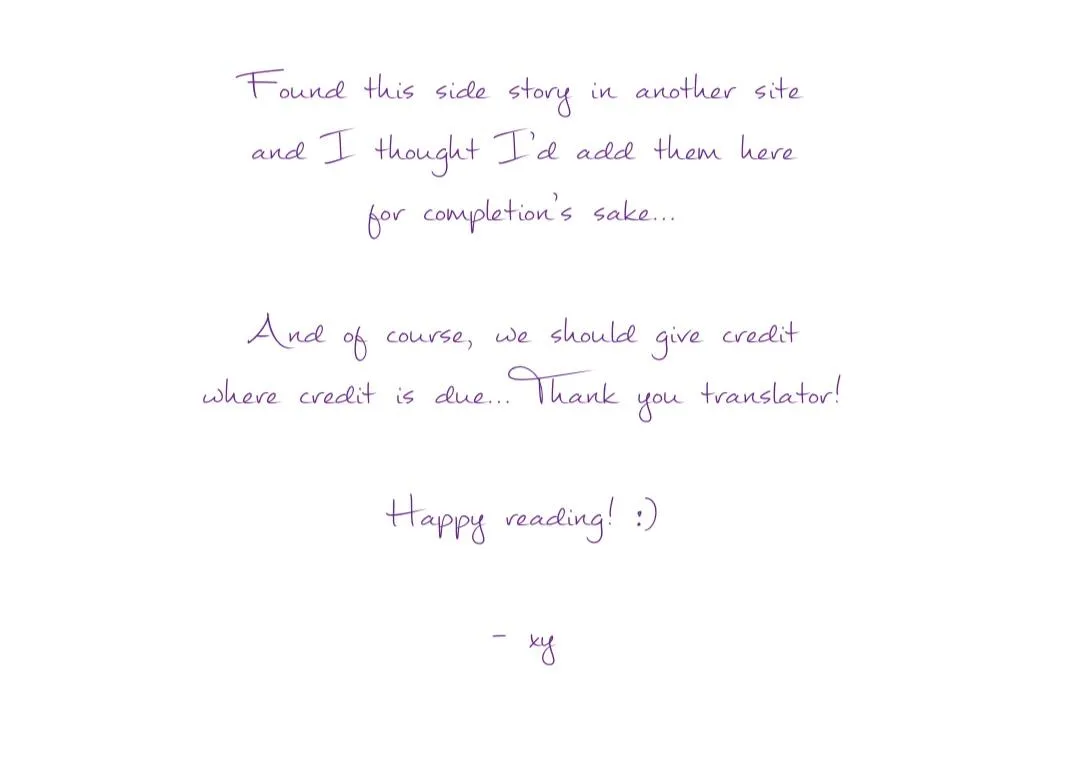 Found this side story in another site
and I thought I'd add them here
for completion's sake...
And of course, we should give credit
where credit is due... Thank you translator!
Happy reading! :)
- xy